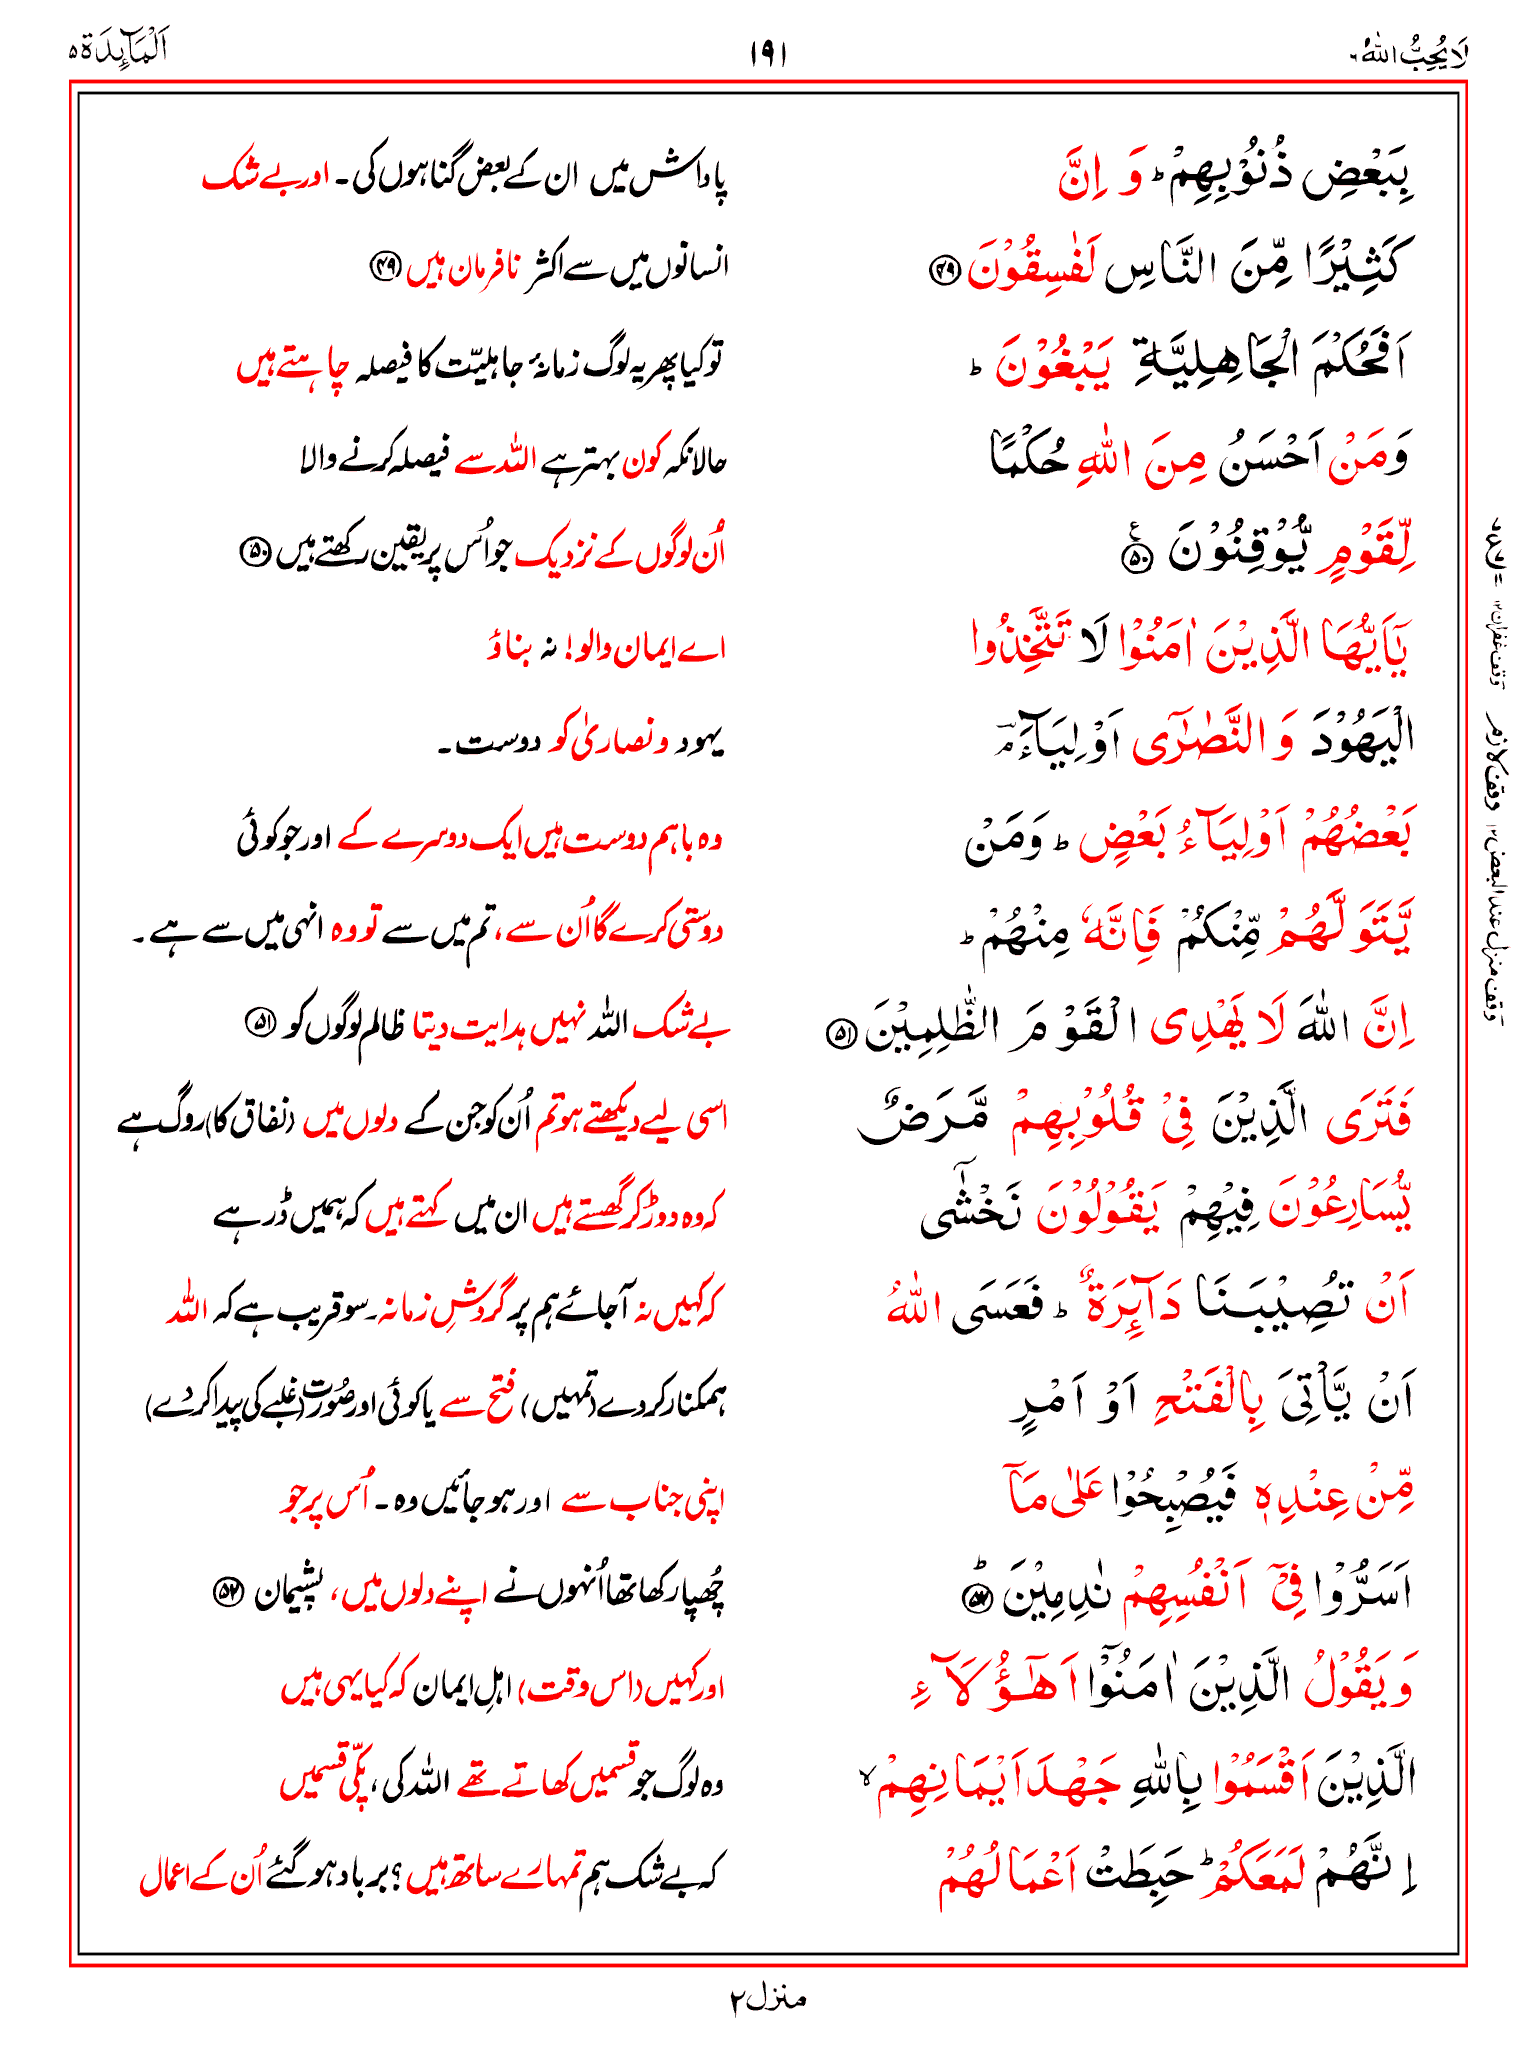 لَا يُحِبُّ اللّٰهُ ٦
١٩١
اَلْمَآئِدَة ٥
بِبَعْضِ ذُنُوْبِهِمْ ؕ وَ اِنَّ
پاداش میں ان کے بعض گناہوں کی۔ اور بے شک
كَثِيْرًا مِّنَ النَّاسِ لَفٰسِقُوْنَ ﴿۴۹﴾
انسانوں میں سے اکثر نافرمان ہیں ﴿۴۹﴾
اَفَحُكْمَ الْجَاهِلِيَّةِ يَبْغُوْنَ ؕ
تو کیا پھر یہ لوگ زمانۂ جاہلیّت کا فیصلہ چاہتے ہیں
وَمَنْ اَحْسَنُ مِنَ اللّٰهِ حُكْمًا
حالانکہ کون بہتر ہے اللہ سے فیصلہ کرنے والا
لِّقَوْمٍ يُّوْقِنُوْنَ ﴿۵۰﴾ ع
اُن لوگوں کے نزدیک جو اُس پر یقین رکھتے ہیں ﴿۵۰﴾
يٰۤاَيُّهَا الَّذِيْنَ اٰمَنُوْا لَا تَتَّخِذُوا
اے ایمان والو! نہ بناؤ
الْيَهُوْدَ وَ النَّصٰرٰۤى اَوْلِيَآءَ ۘ
یہود و نصاریٰ کو دوست۔
بَعْضُهُمْ اَوْلِيَآءُ بَعْضٍ ؕ وَمَنْ
وہ باہم دوست ہیں ایک دوسرے کے اور جو کوئی
يَّتَوَلَّهُمْ مِّنْكُمْ فَاِنَّهٗ مِنْهُمْ ؕ
دوستی کرے گا اُن سے، تم میں سے تو وہ انہی میں سے ہے۔
اِنَّ اللّٰهَ لَا يَهْدِى الْقَوْمَ الظّٰلِمِيْنَ ﴿۵۱﴾
بے شک اللہ نہیں ہدایت دیتا ظالم لوگوں کو ﴿۵۱﴾
فَتَرَى الَّذِيْنَ فِىْ قُلُوْبِهِمْ مَّرَضٌ
اسی لیے دیکھتے ہو تم اُن کو جن کے دلوں میں (نفاق کا) روگ ہے
يُّسَارِعُوْنَ فِيْهِمْ يَقُوْلُوْنَ نَخْشٰۤى
کہ وہ دوڑ کر گھستے ہیں ان میں کہتے ہیں کہ ہمیں ڈر ہے
اَنْ تُصِيْبَنَا دَآئِرَةٌ ؕ فَعَسَى اللّٰهُ
کہ کہیں نہ آجائے ہم پر گردشِ زمانہ۔ سو قریب ہے کہ اللہ
اَنْ يَّاْتِىَ بِالْفَتْحِ اَوْ اَمْرٍ
ہمکنار کردے (تمہیں) فتح سے یا کوئی اور صُورت (غلبے کی پیدا کردے)
مِّنْ عِنْدِهٖ فَيُصْبِحُوْا عَلٰى مَاۤ
اپنی جناب سے اور ہو جائیں وہ۔ اُس پر جو
اَسَرُّوْا فِىْۤ اَنْفُسِهِمْ نٰدِمِيْنَ ؕ﴿۵۲﴾
چُھپا رکھا تھا اُنہوں نے اپنے دلوں میں، پشیمان ﴿۵۲﴾
وَيَقُوْلُ الَّذِيْنَ اٰمَنُوْۤا اَهٰٓؤُلَآءِ
اور کہیں (اس وقت) اہلِ ایمان کہ کیا یہی ہیں
الَّذِيْنَ اَقْسَمُوْا بِاللّٰهِ جَهْدَ اَيْمَانِهِمْ ۙ
وہ لوگ جو قسمیں کھاتے تھے اللہ کی، پکّی قسمیں
اِنَّهُمْ لَمَعَكُمْ ؕ حَبِطَتْ اَعْمَالُهُمْ
کہ بے شک ہم تمہارے ساتھ ہیں؟ برباد ہو گئے اُن کے اعمال
وقف غفران ١٢
وقف لازم
وقف منزل عند البعض ١٢
منزل ٢